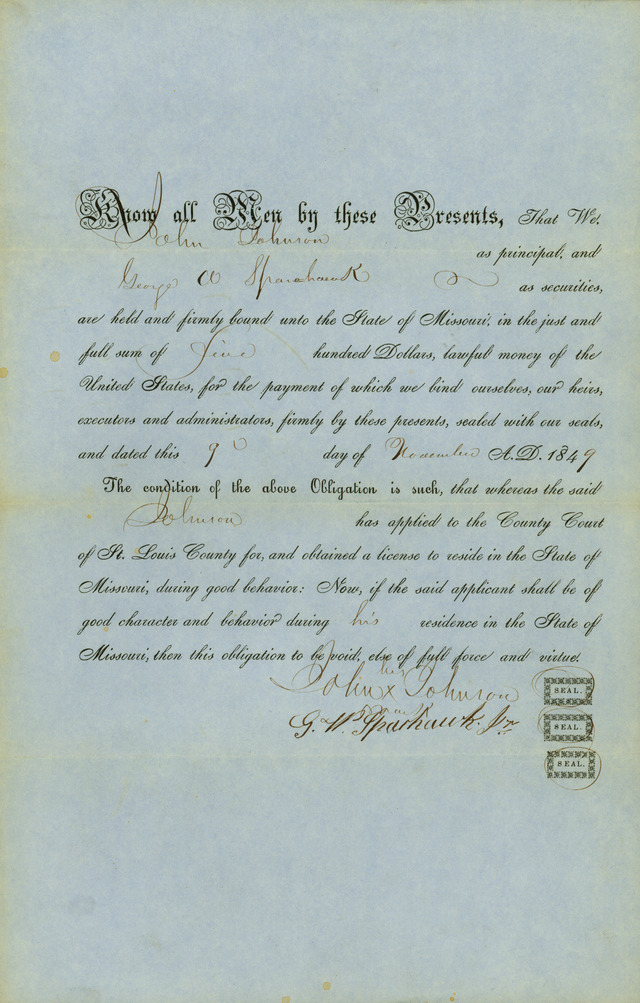 Know all Men by these Presents, That We,
John Johnson
as principal, and
George W Sparhawk
as securities,
are held and firmly bound unto the State of Missouri, in the just and
full sum of Five hundred Dollars, lawful money of the
United States, for the payment of which we bind ourselves, our heirs,
executors and administrators, firmly by these presents, sealed with our seals,
and dated this 9 day of November A.D. 1849
The condition of the above Obligation is such, that whereas the said
Johnson has applied to the County Court
of St. Louis County for, and obtained a license to reside in the State of
Missouri, during good behavior: Now, if the said applicant shall be of
good character and behavior during his residence in the State of
Missouri, then this obligation to be void, else of full force and virtue.
his
John x Johnson SEAL.
G. W. Sparhawk, Jr. SEAL.
SEAL.